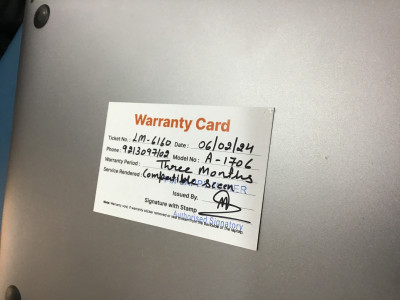 Warranty Card
Ticket No.: LM-6160 Date: 06/02/24
Phone: 9213097102 Model No: A-1706
Warranty Period: Three Months
Service Rendered: Compatible screen
Issued By.
Signature with Stamp
Authorised Signatory